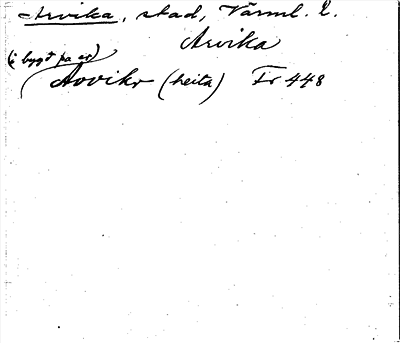 Arvika, stad, Värml. l.
Arvika
(i bygd þa er)
Arvikr (heita) Fr 448